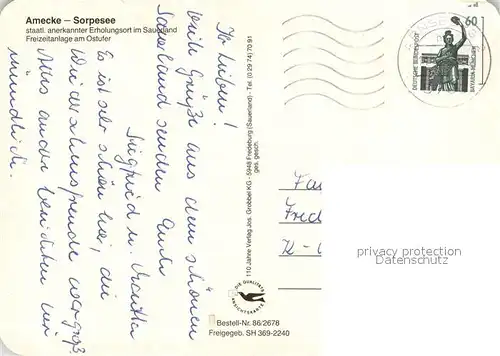 Amecke – Sorpesee
staatl. anerkannter Erholungsort im Sauerland
Freizeitanlage am Ostufer
Ihr Lieben!
viele Grüße aus dem schönen
Sauerland senden Euch
Siegfried u.
Es ist sehr schön hier, die
Alles andre berichten wir
mündlich.
110 Jahre Verlag Jos. Grobbel KG - 5948 Fredeburg (Sauerland) - Tel. (0 29 74) 70 91
ges. gesch.
DIE QUALITÄTS
ANSICHTSKARTE
Bestell-Nr. 86/2678
Freigegeb. SH 369-2240
60
DEUTSCHE BUNDESPOST
BAVARIA MÜNCHEN
privacy protection
Datenschutz